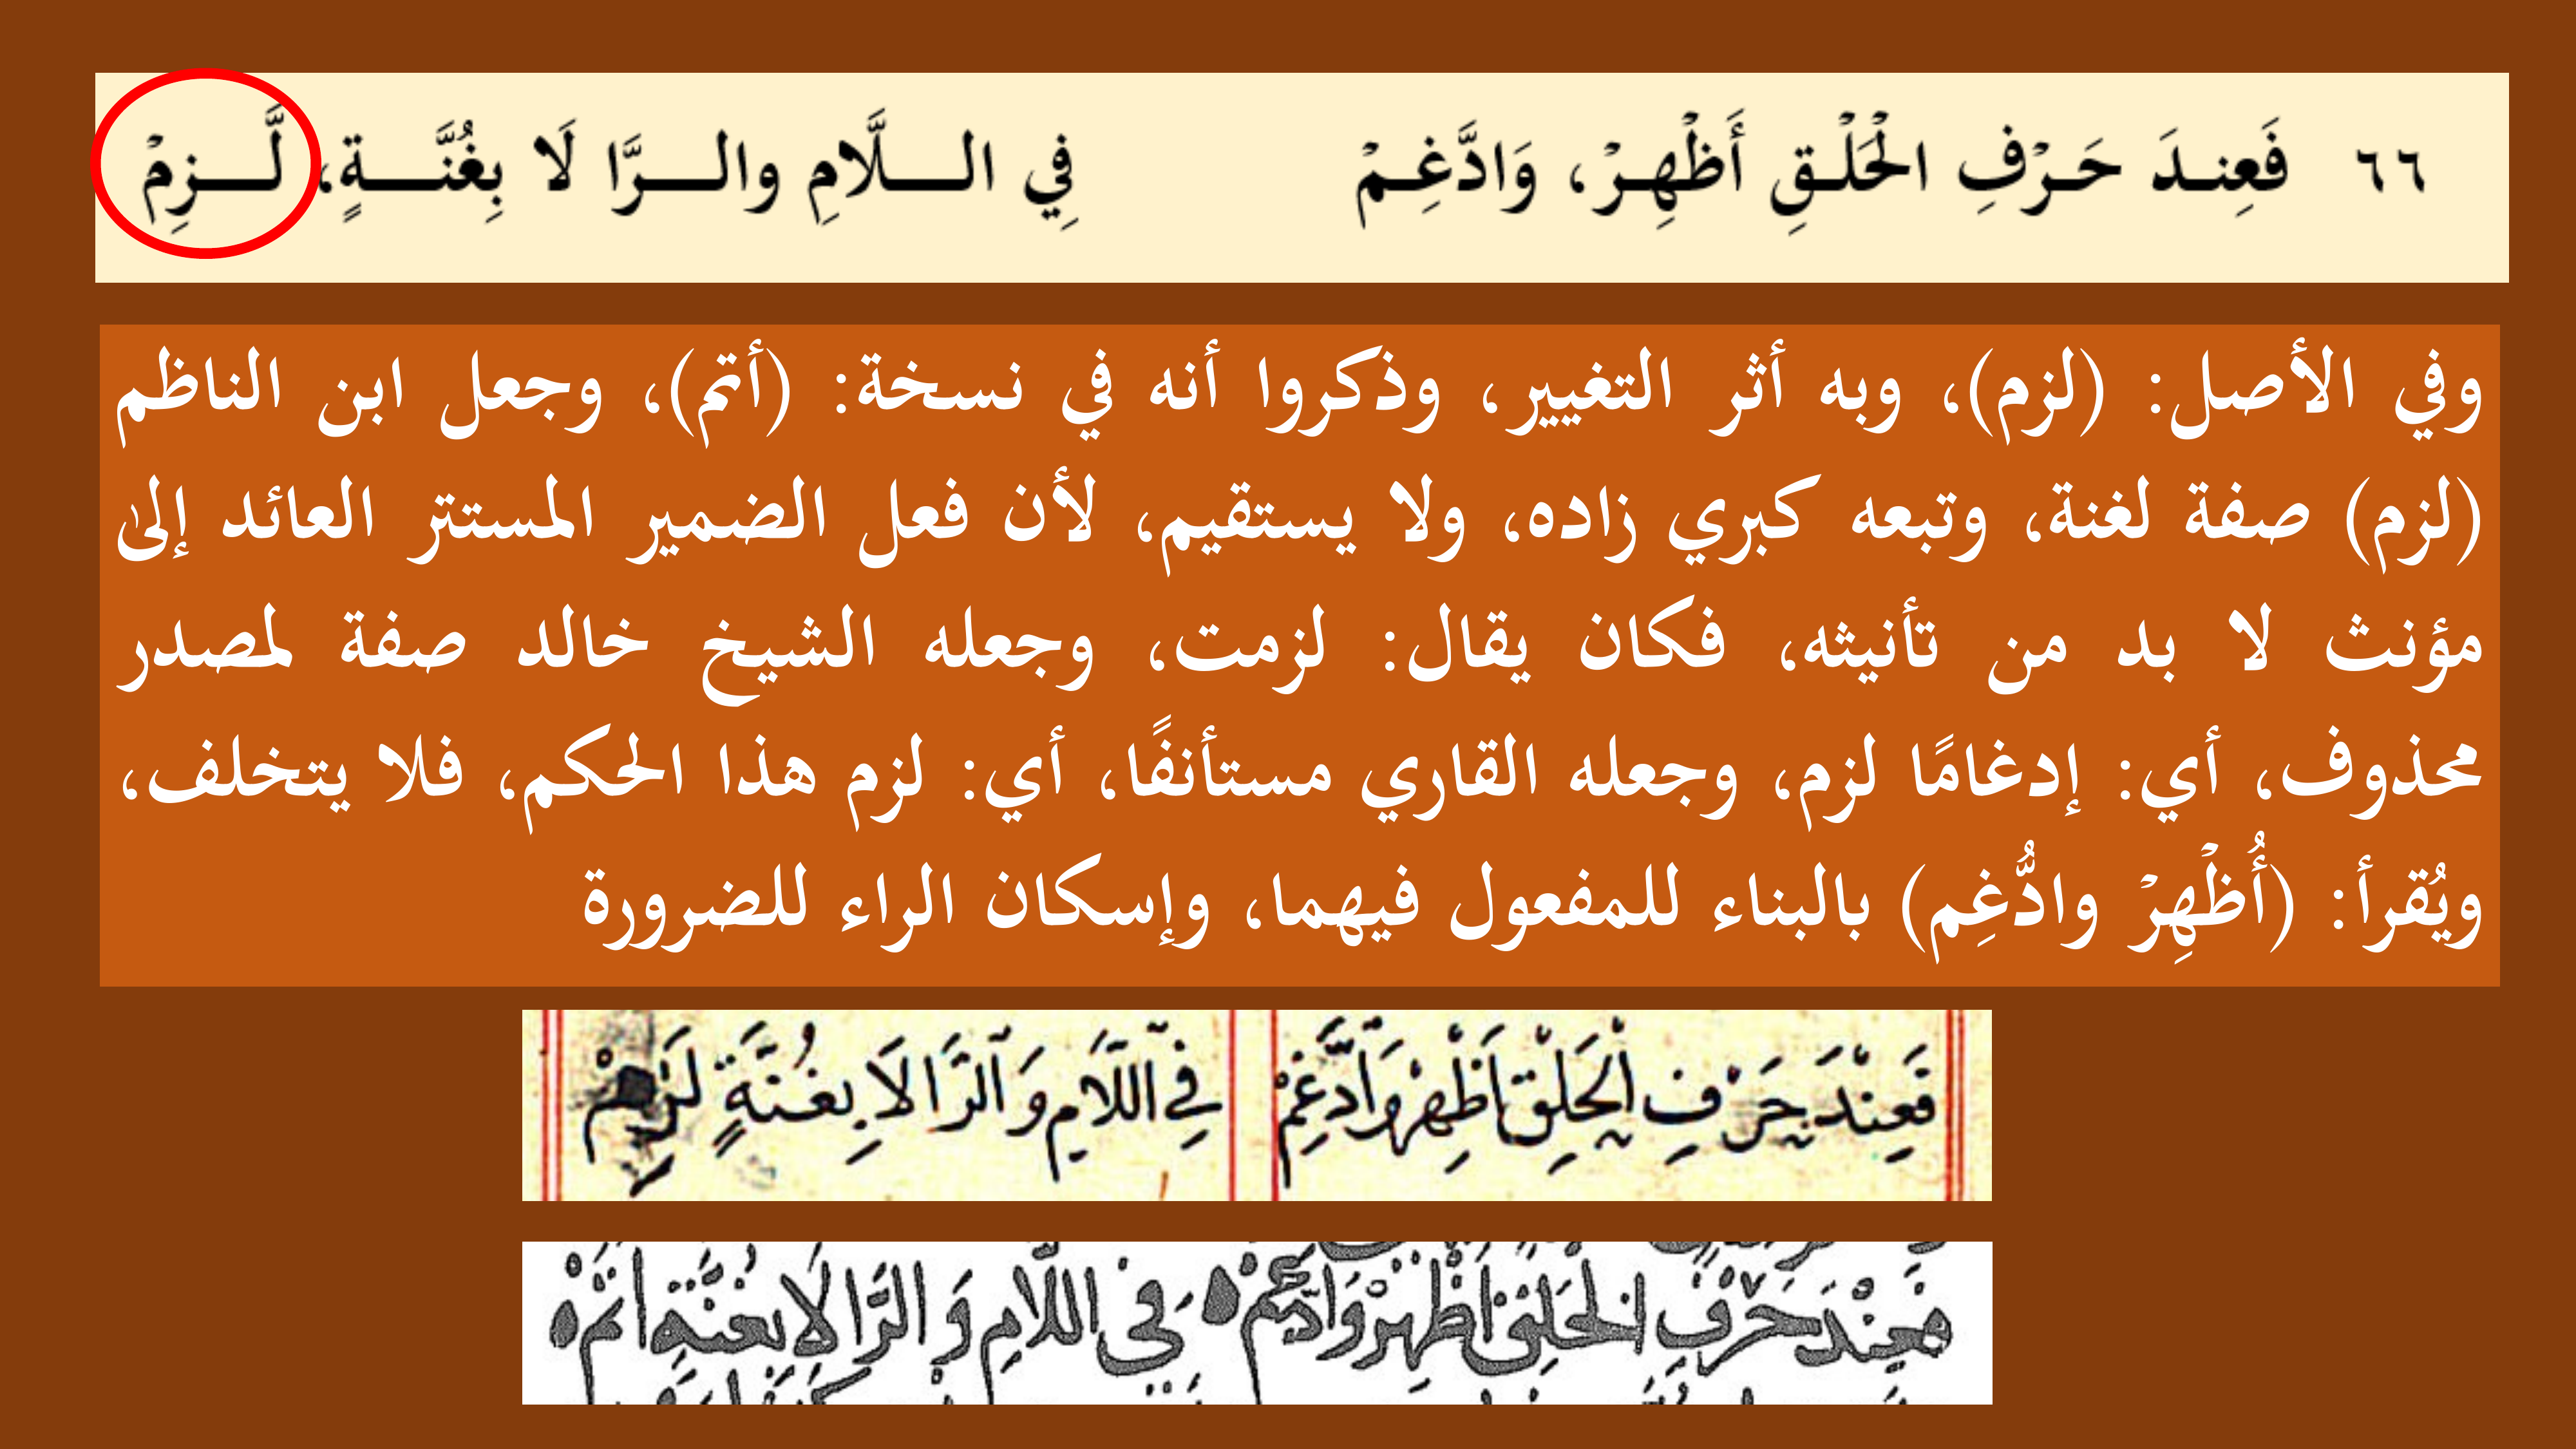 ٦٦ فَعِندَ حَرْفِ الْحَلْقِ أَظْهِرْ، وَادَّغِمْ فِي اللَّامِ والرَّا لَا بِغُنَّةٍ، لَّزِمْ
وفي الأصل: (لزم)، وبه أثر التغيير، وذكروا أنه في نسخة: (أتم)، وجعل ابن الناظم
(لزم) صفة لغنة، وتبعه كبري زاده، ولا يستقيم، لأن فعل الضمير المستتر العائد إلى
مؤنث لا بد من تأنيثه، فكان يقال: لزمت، وجعله الشيخ خالد صفة لمصدر
محذوف، أي: إدغامًا لزم، وجعله القاري مستأنفًا، أي: لزم هذا الحكم، فلا يتخلف،
ويُقرأ: (أُظْهِرْ وادُّغِم) بالبناء للمفعول فيهما، وإسكان الراء للضرورة
فَعِنْدَ حَرْفِ الْحَلْقِ اَظْهِرْ وَادَّغِمْ فِي اللَّامِ وَالرَّا لَا بِغُنَّةٍ لَزِمْ
فَعِنْدَ حَرْفِ الْحَلْقِ اَظْهِرْ وَادَّغِمْ فِي اللَّامِ وَالرَّا لَا بِغُنَّةٍ اتَمْ